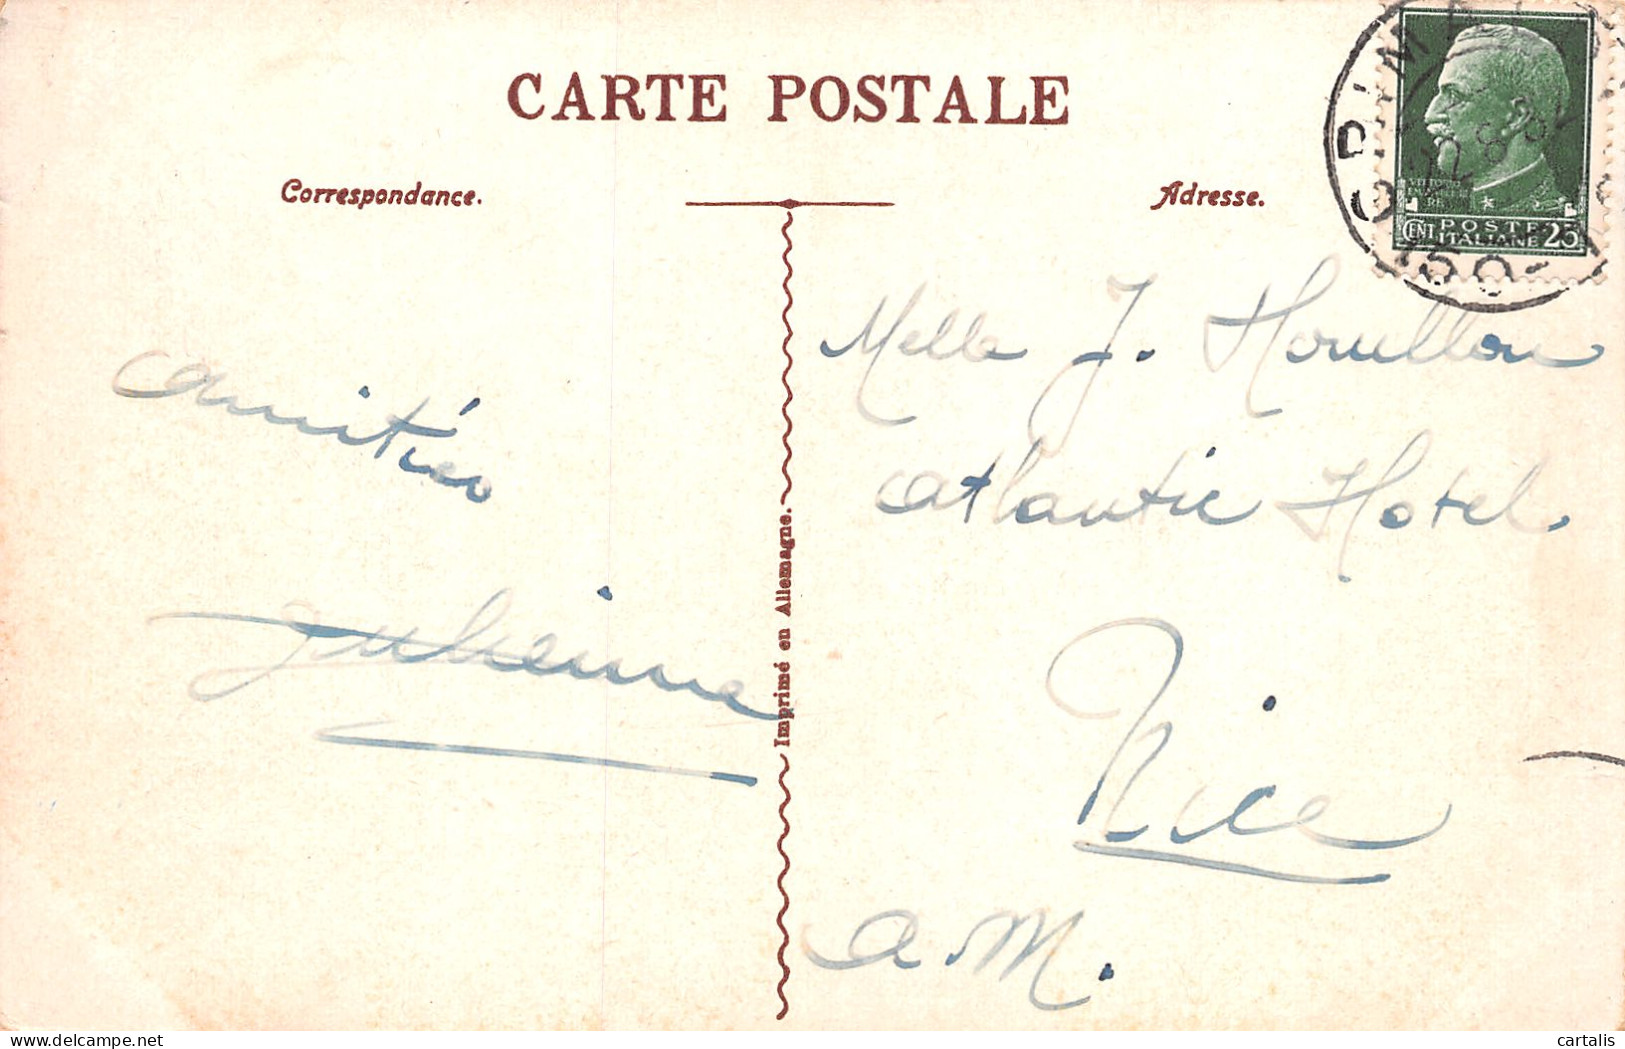 CARTE POSTALE
Correspondance.
Adresse.
VITTORIO
EMANUELE
RE
CENT POSTE ITALIANE 25
Amitiés
Julienne
Melle J. Houillon
Atlantic Hotel
Nice
A.M.
Imprimé en Allemagne.
delcampe.net
cartalis